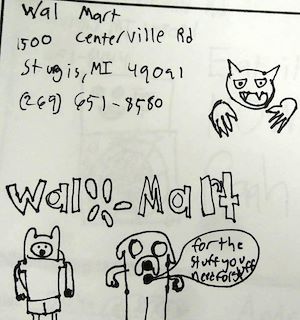 Wal Mart
1500 Centerville Rd
Sturgis, MI 49091
(269) 651-8580
Wal-Mart
for the
stuff you
need for stuff